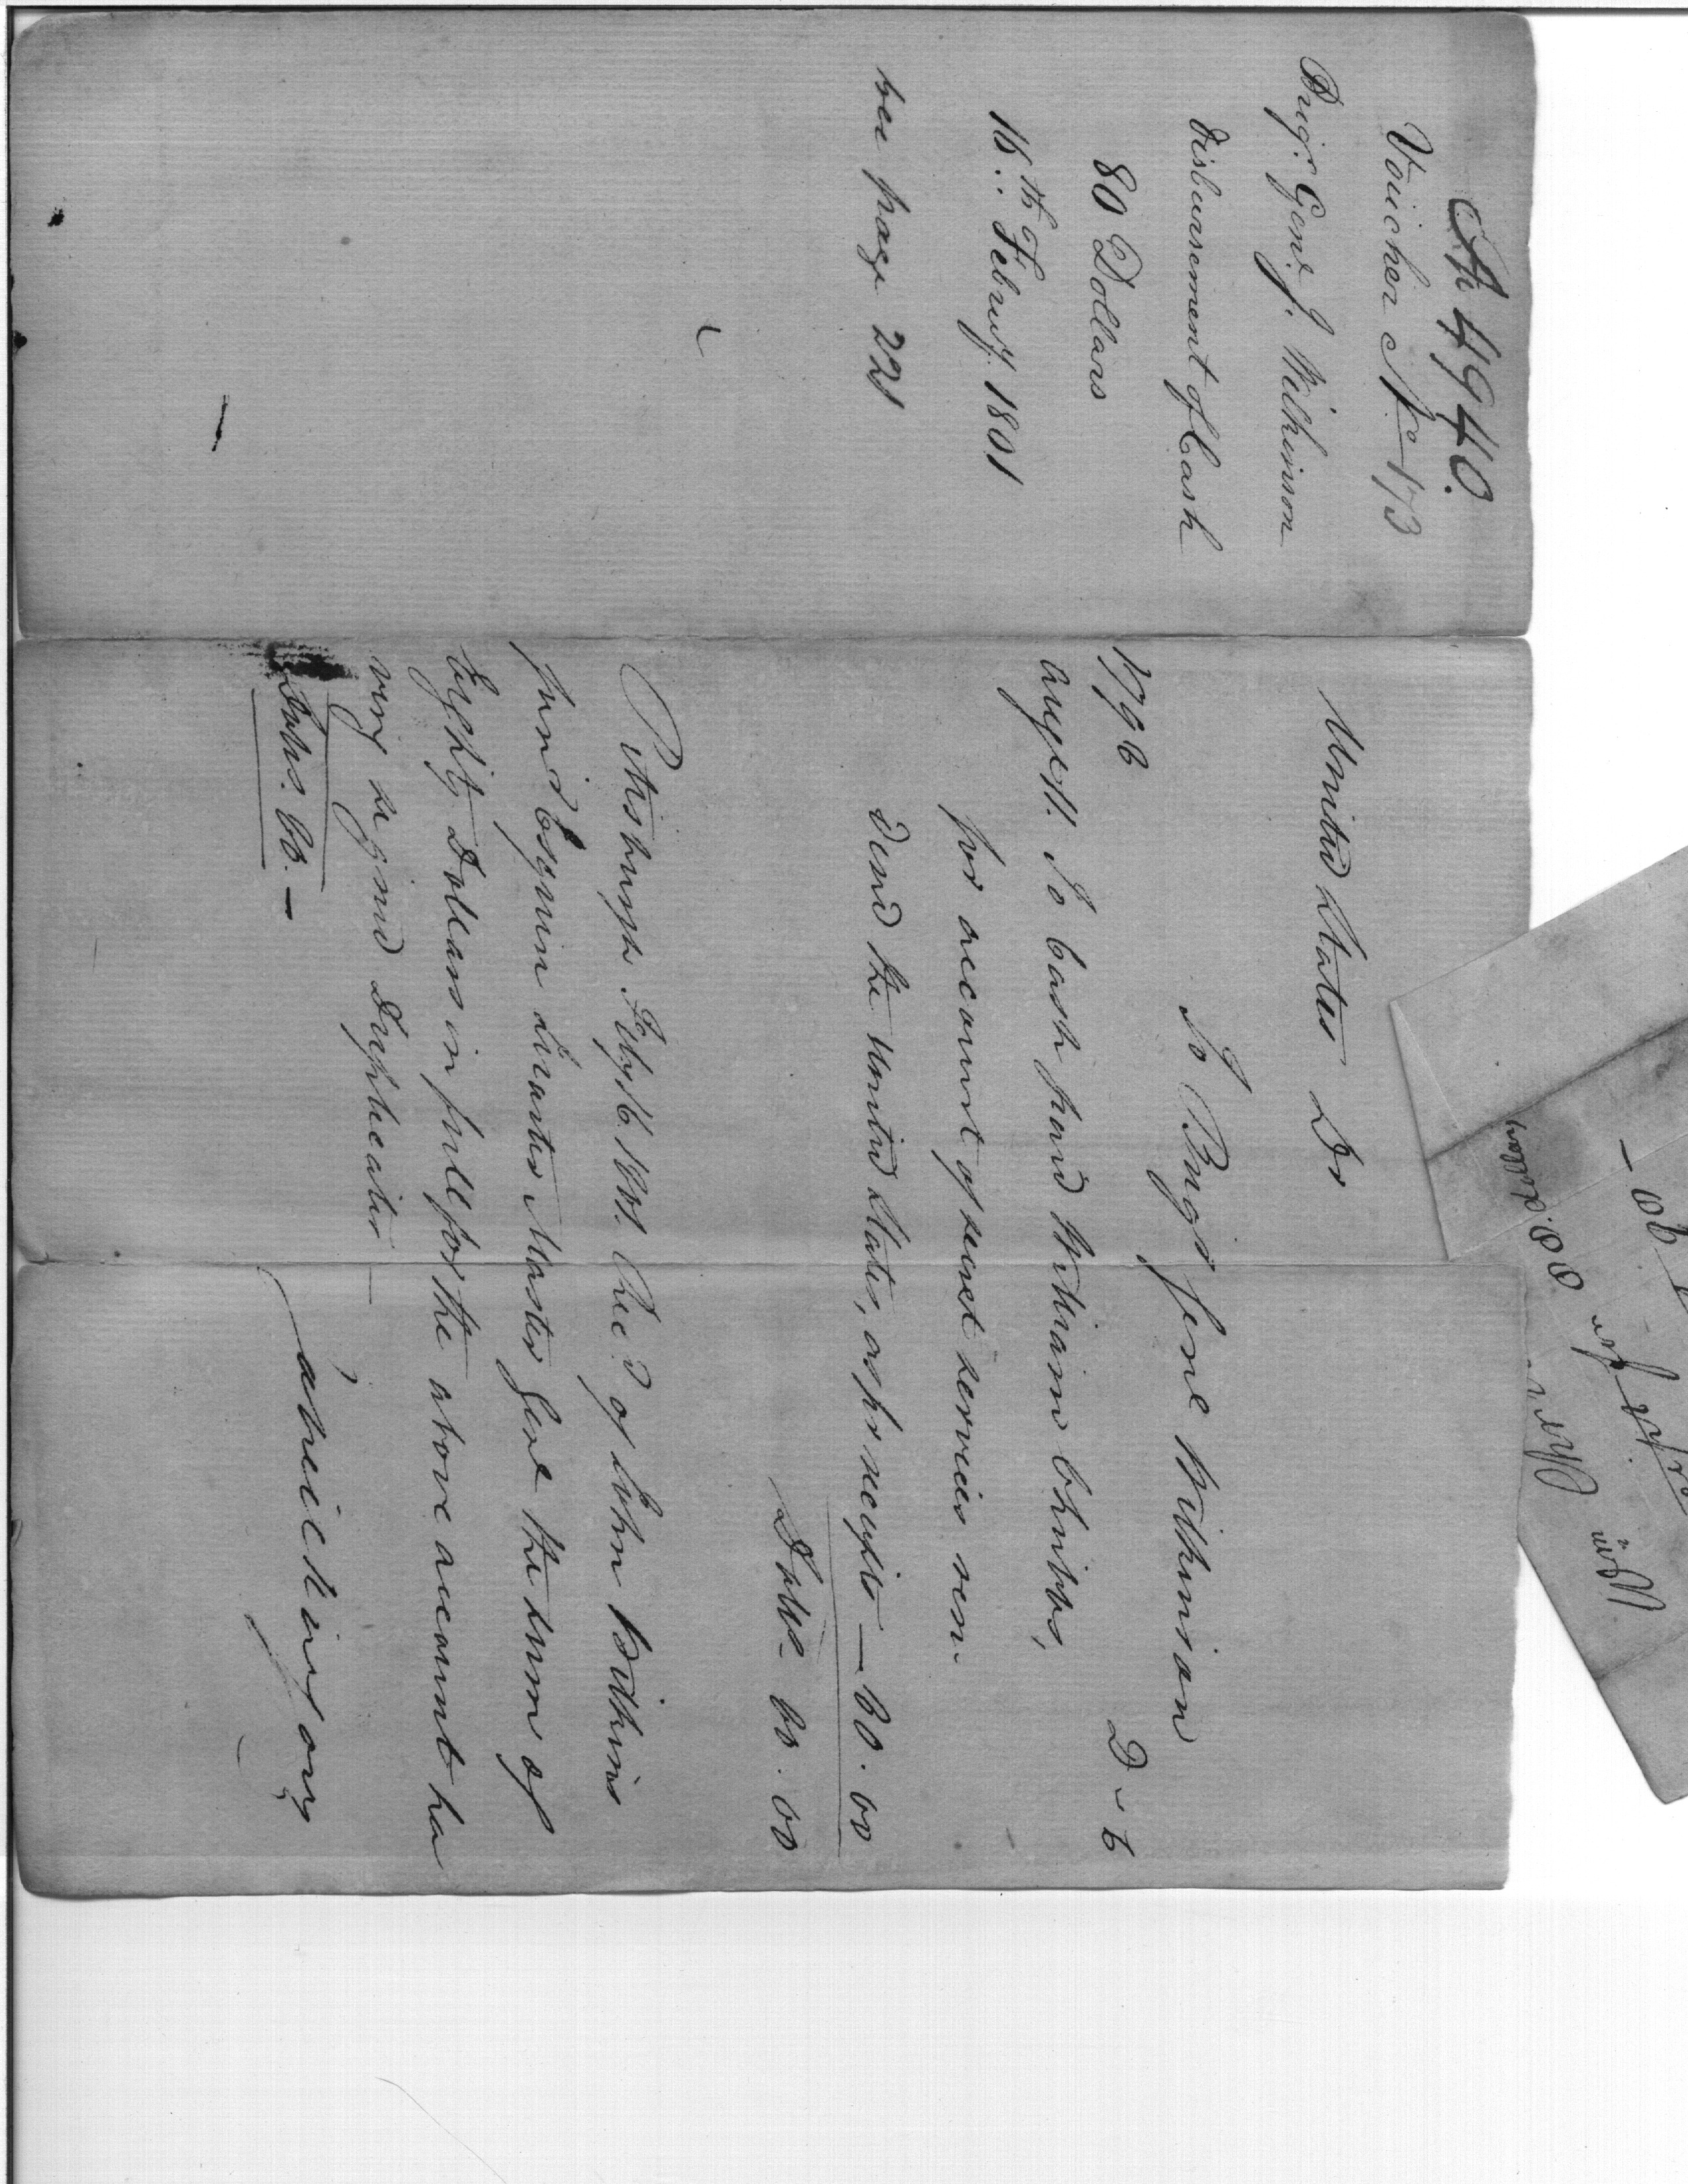 A 4940.
Voucher No 173
Brigr. Genl J. Wilkinson
disbursement of Cash
80 Dollars
16th Februy. 1801
see page 221
United States Dr
To Brigr Genl Wilkinson
1796 D - C
August. To Cash paid William Chribbs,
for account of secret services ren-
dered the United States, as pr receipts — 80.00
Dolls 80.00
Pittsburgh Feby 16. 1801. Recd of John Wilkins
junr Esquire Quarter Master Genl the sum of
Eighty Dollars in full for the above account ha
ving signed Duplicates
Dolls. 80. —
00 Dollars